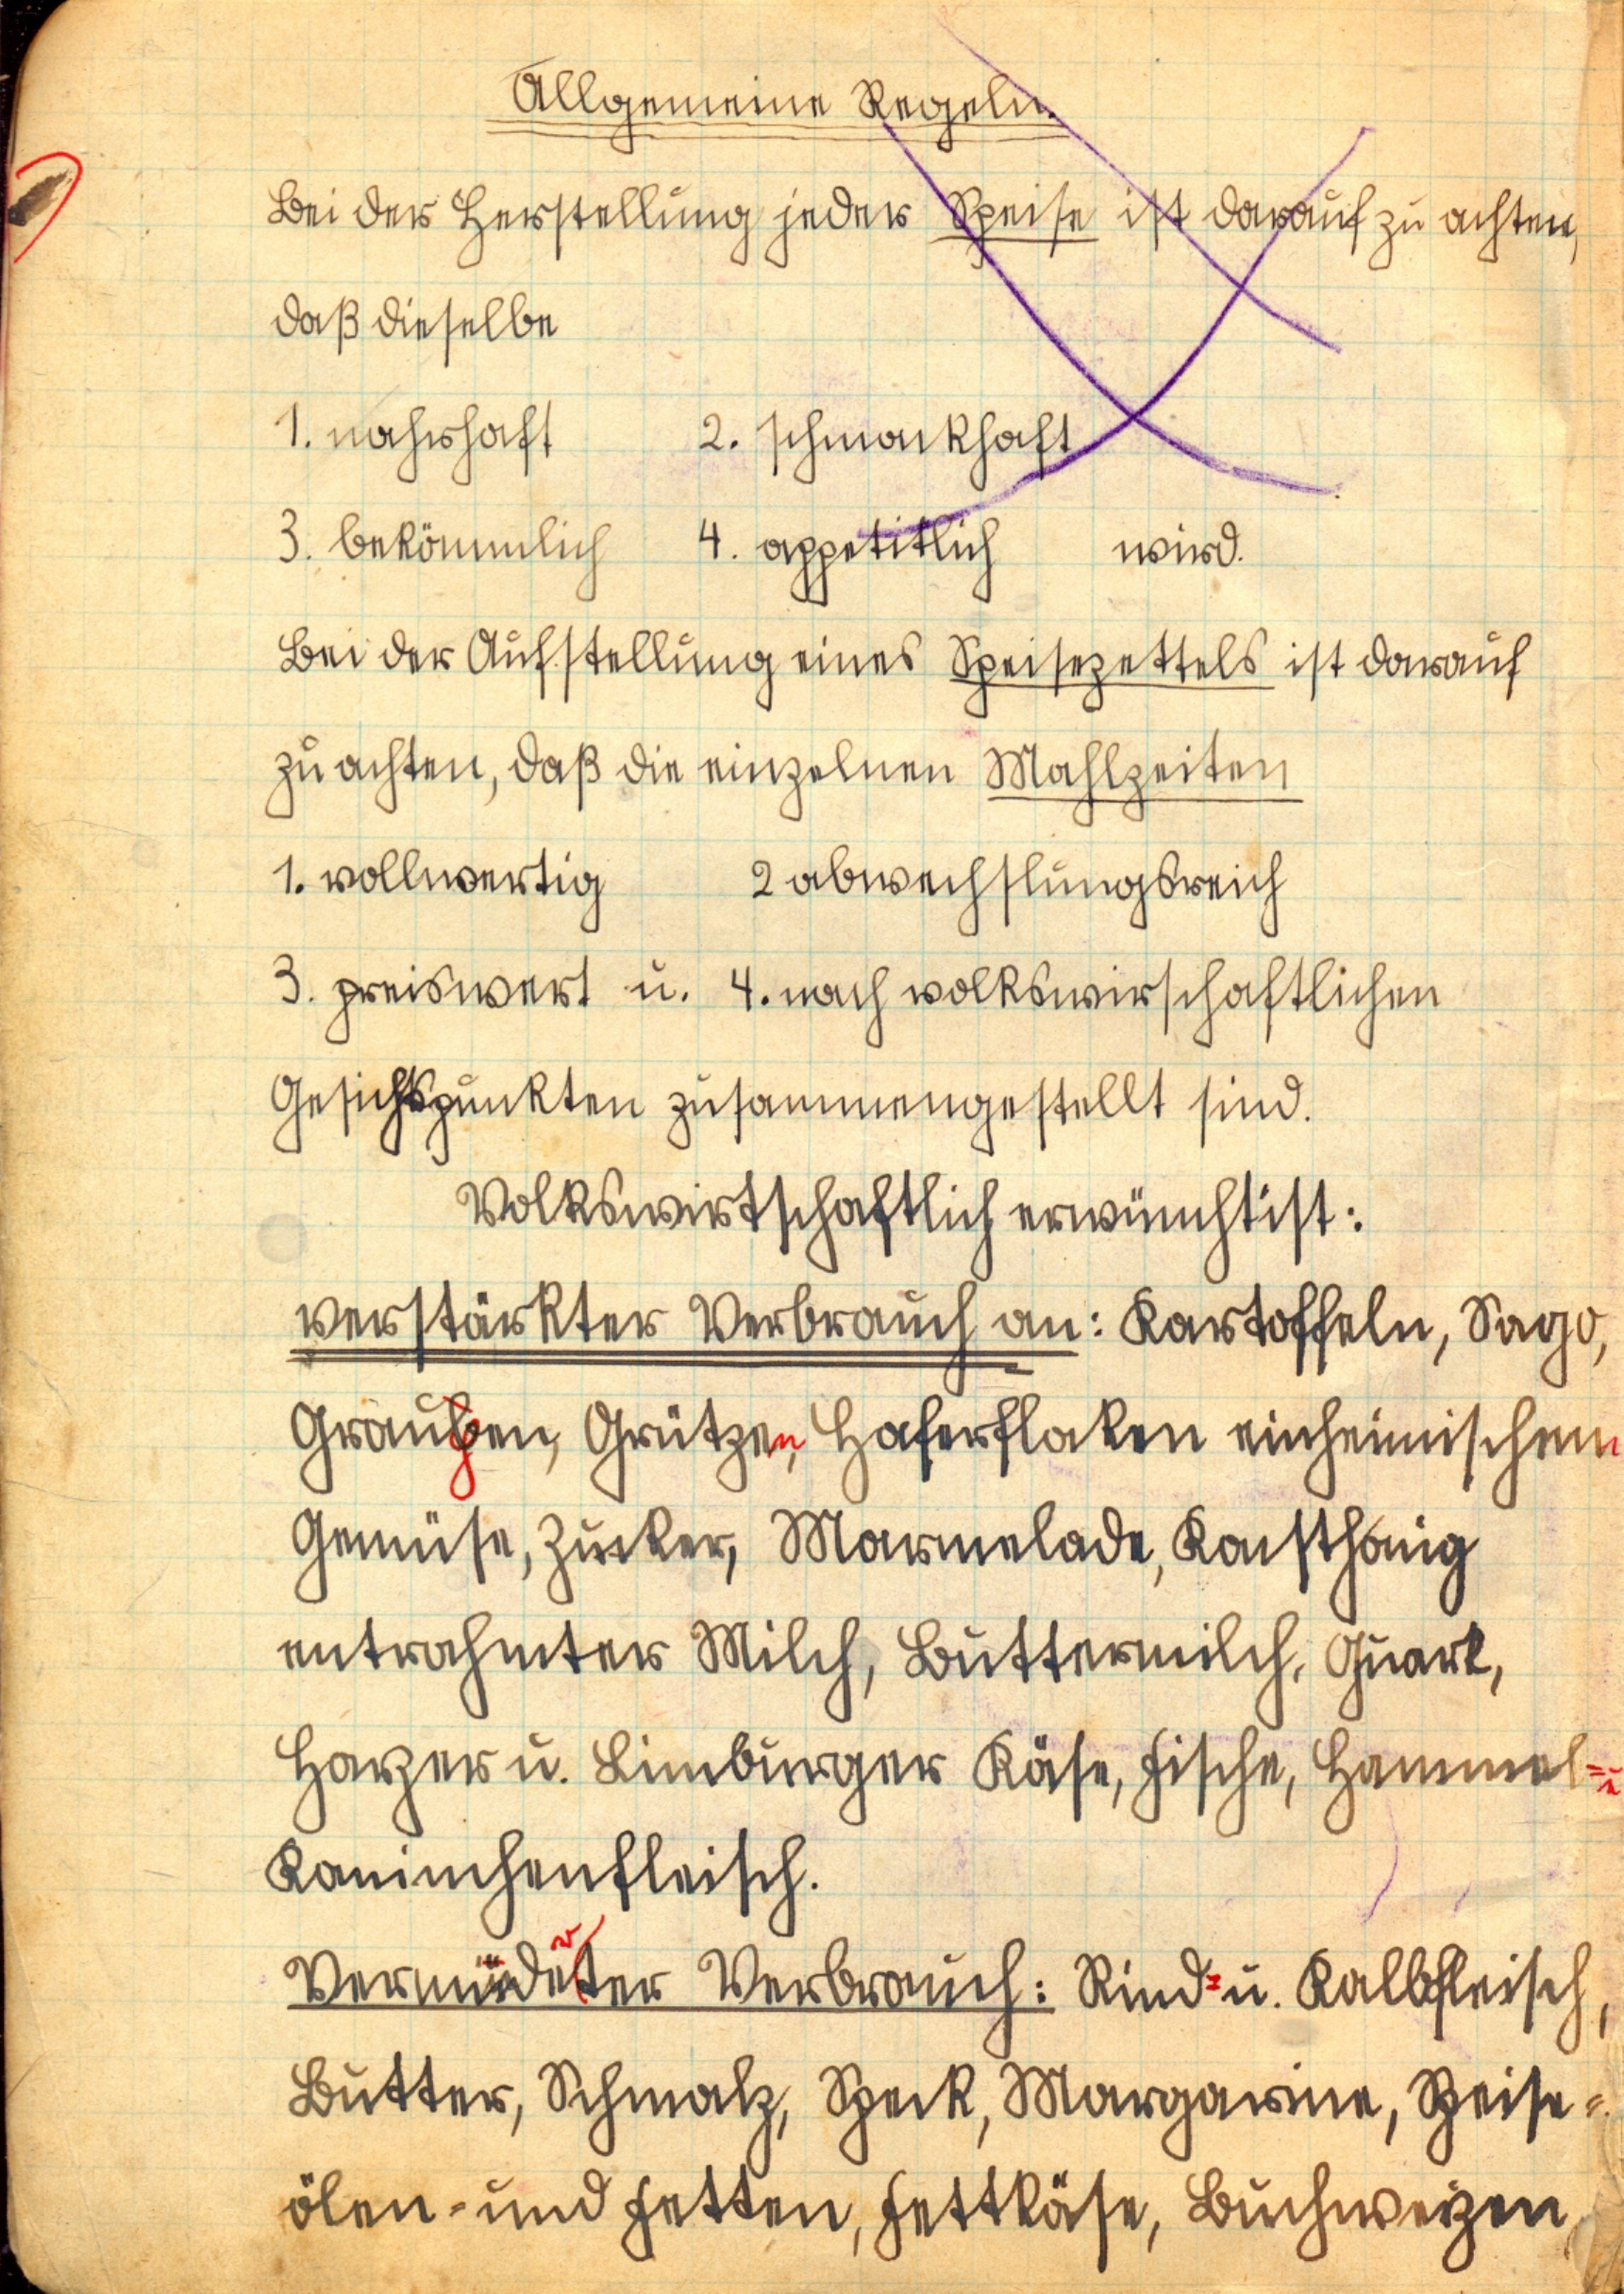 Allgemeine Regeln.
Bei der Herstellung jeder Speise ist darauf zu achten,
daß dieselbe
1. nahrhaft 2. schmackhaft
3. bekömmlich 4. appetitlich wird.
Bei der Aufstellung eines Speisezettels ist darauf
zu achten, daß die einzelnen Mahlzeiten
1. vollwertig 2 abwechslungsreich
3. preiswert u. 4. nach volkswirschaftlichen
Gesichtspunkten zusammengestellt sind.
Volkswirtschaftlich erwünscht ist:
verstärkter Verbrauch an: Kartoffeln, Sago,
Graupen, Grützen, Haferflocken einheimischem
Gemüse, Zucker, Marmelade, Kunsthonig
entrahmter Milch, Buttermilch, Quark,
Harzer u. Limburger Käse, Fische, Hammel- u
Kaninchenfleisch.
Verminderter Verbrauch: Rind- u. Kalbfleisch,
Butter, Schmalz, Speck, Margarine, Speise-
ölen- und Fetten, Fettkäse, Buchweizen,